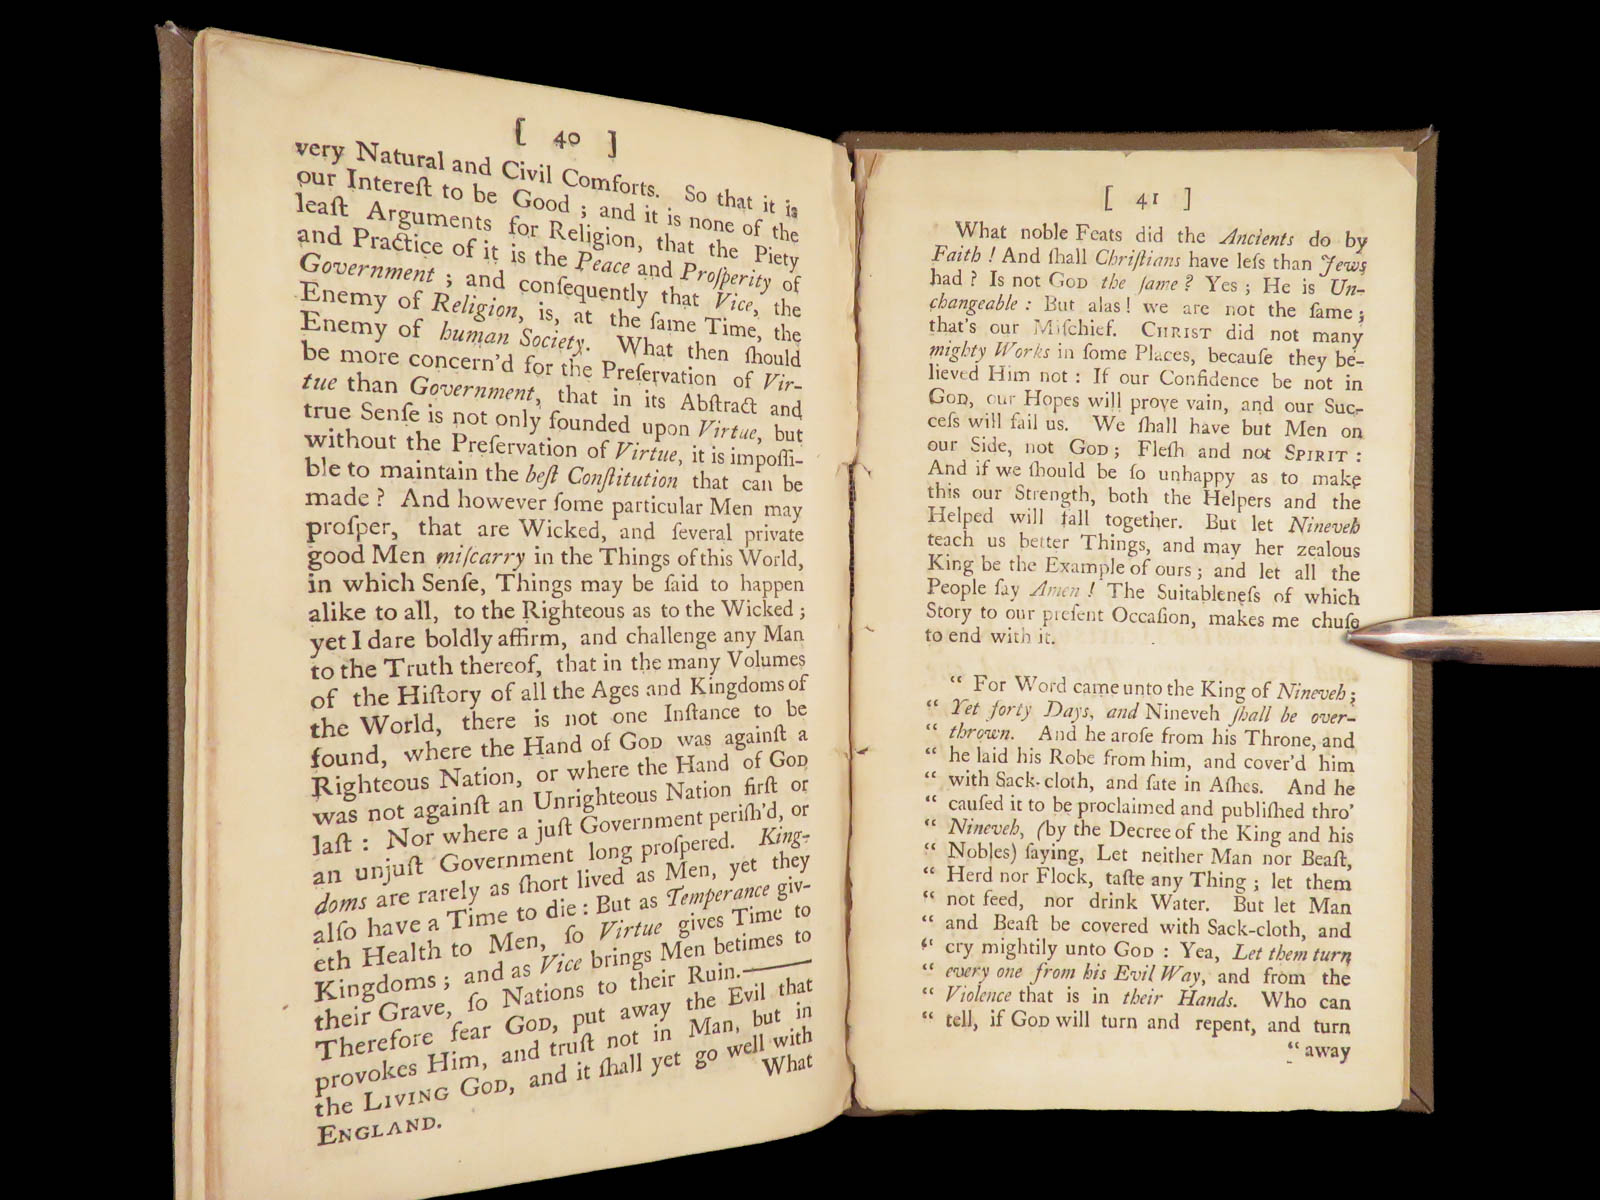 [ 40 ]
very Natural and Civil Comforts. So that it is
our Intereſt to be Good ; and it is none of the
leaſt Arguments for Religion, that the Piety
and Practice of it is the Peace and Proſperity of
Government ; and conſequently that Vice, the
Enemy of Religion, is, at the ſame Time, the
Enemy of human Society. What then ſhould
be more concern'd for the Preſervation of Vir-
tue than Government, that in its Abſtract and
true Senſe is not only founded upon Virtue, but
without the Preſervation of Virtue, it is impoſſi-
ble to maintain the beſt Conſtitution that can be
made ? And however ſome particular Men may
proſper, that are Wicked, and ſeveral private
good Men miſcarry in the Things of this World,
in which Senſe, Things may be ſaid to happen
alike to all, to the Righteous as to the Wicked ;
yet I dare boldly affirm, and challenge any Man
to the Truth thereof, that in the many Volumes
of the Hiſtory of all the Ages and Kingdoms of
the World, there is not one Inſtance to be
found, where the Hand of GOD was againſt a
Righteous Nation, or where the Hand of GOD
was not againſt an Unrighteous Nation firſt or
laſt : Nor where a juſt Government periſh'd, or
an unjuſt Government long proſpered. King-
doms are rarely as ſhort lived as Men, yet they
alſo have a Time to die : But as Temperance giv-
eth Health to Men, ſo Virtue gives Time to
Kingdoms ; and as Vice brings Men betimes to
their Grave, ſo Nations to their Ruin.——
Therefore fear GOD, put away the Evil that
provokes Him, and truſt not in Man, but in
the LIVING GOD, and it ſhall yet go well with
ENGLAND.
What
[ 41 ]
What noble Feats did the Ancients do by
Faith ! And ſhall Chriſtians have leſs than Jews
had ? Is not GOD the ſame ? Yes ; He is Un-
changeable : But alas! we are not the ſame ;
that's our Miſchief. CHRIST did not many
mighty Works in ſome Places, becauſe they be-
lieved Him not : If our Confidence be not in
GOD, our Hopes will prove vain, and our Suc-
ceſs will fail us. We ſhall have but Men on
our Side, not GOD ; Fleſh and not SPIRIT :
And if we ſhould be ſo unhappy as to make
this our Strength, both the Helpers and the
Helped will fall together. But let Nineveh
teach us better Things, and may her zealous
King be the Example of ours ; and let all the
People ſay Amen ! The Suitableneſs of which
Story to our preſent Occaſion, makes me chuſe
to end with it.
“ For Word came unto the King of Nineveh ;
“ Yet forty Days, and Nineveh ſhall be over-
“ thrown. And he aroſe from his Throne, and
“ he laid his Robe from him, and cover'd him
“ with Sack-cloth, and ſate in Aſhes. And he
“ cauſed it to be proclaimed and publiſhed thro'
“ Nineveh, (by the Decree of the King and his
“ Nobles) ſaying, Let neither Man nor Beaſt,
“ Herd nor Flock, taſte any Thing ; let them
“ not feed, nor drink Water. But let Man
“ and Beaſt be covered with Sack-cloth, and
“ cry mightily unto GOD : Yea, Let them turn
“ every one from his Evil Way, and from the
“ Violence that is in their Hands. Who can
“ tell, if GOD will turn and repent, and turn
“ away